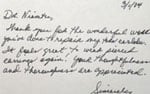 3/1/84
Dr. Nimter,
Thank you for the wonderful work
you've done to repair my ear lobes.
It feels great to wear pierced
earrings again. Your thoughtfulness
and thoroughness are appreciated.
Sincerely